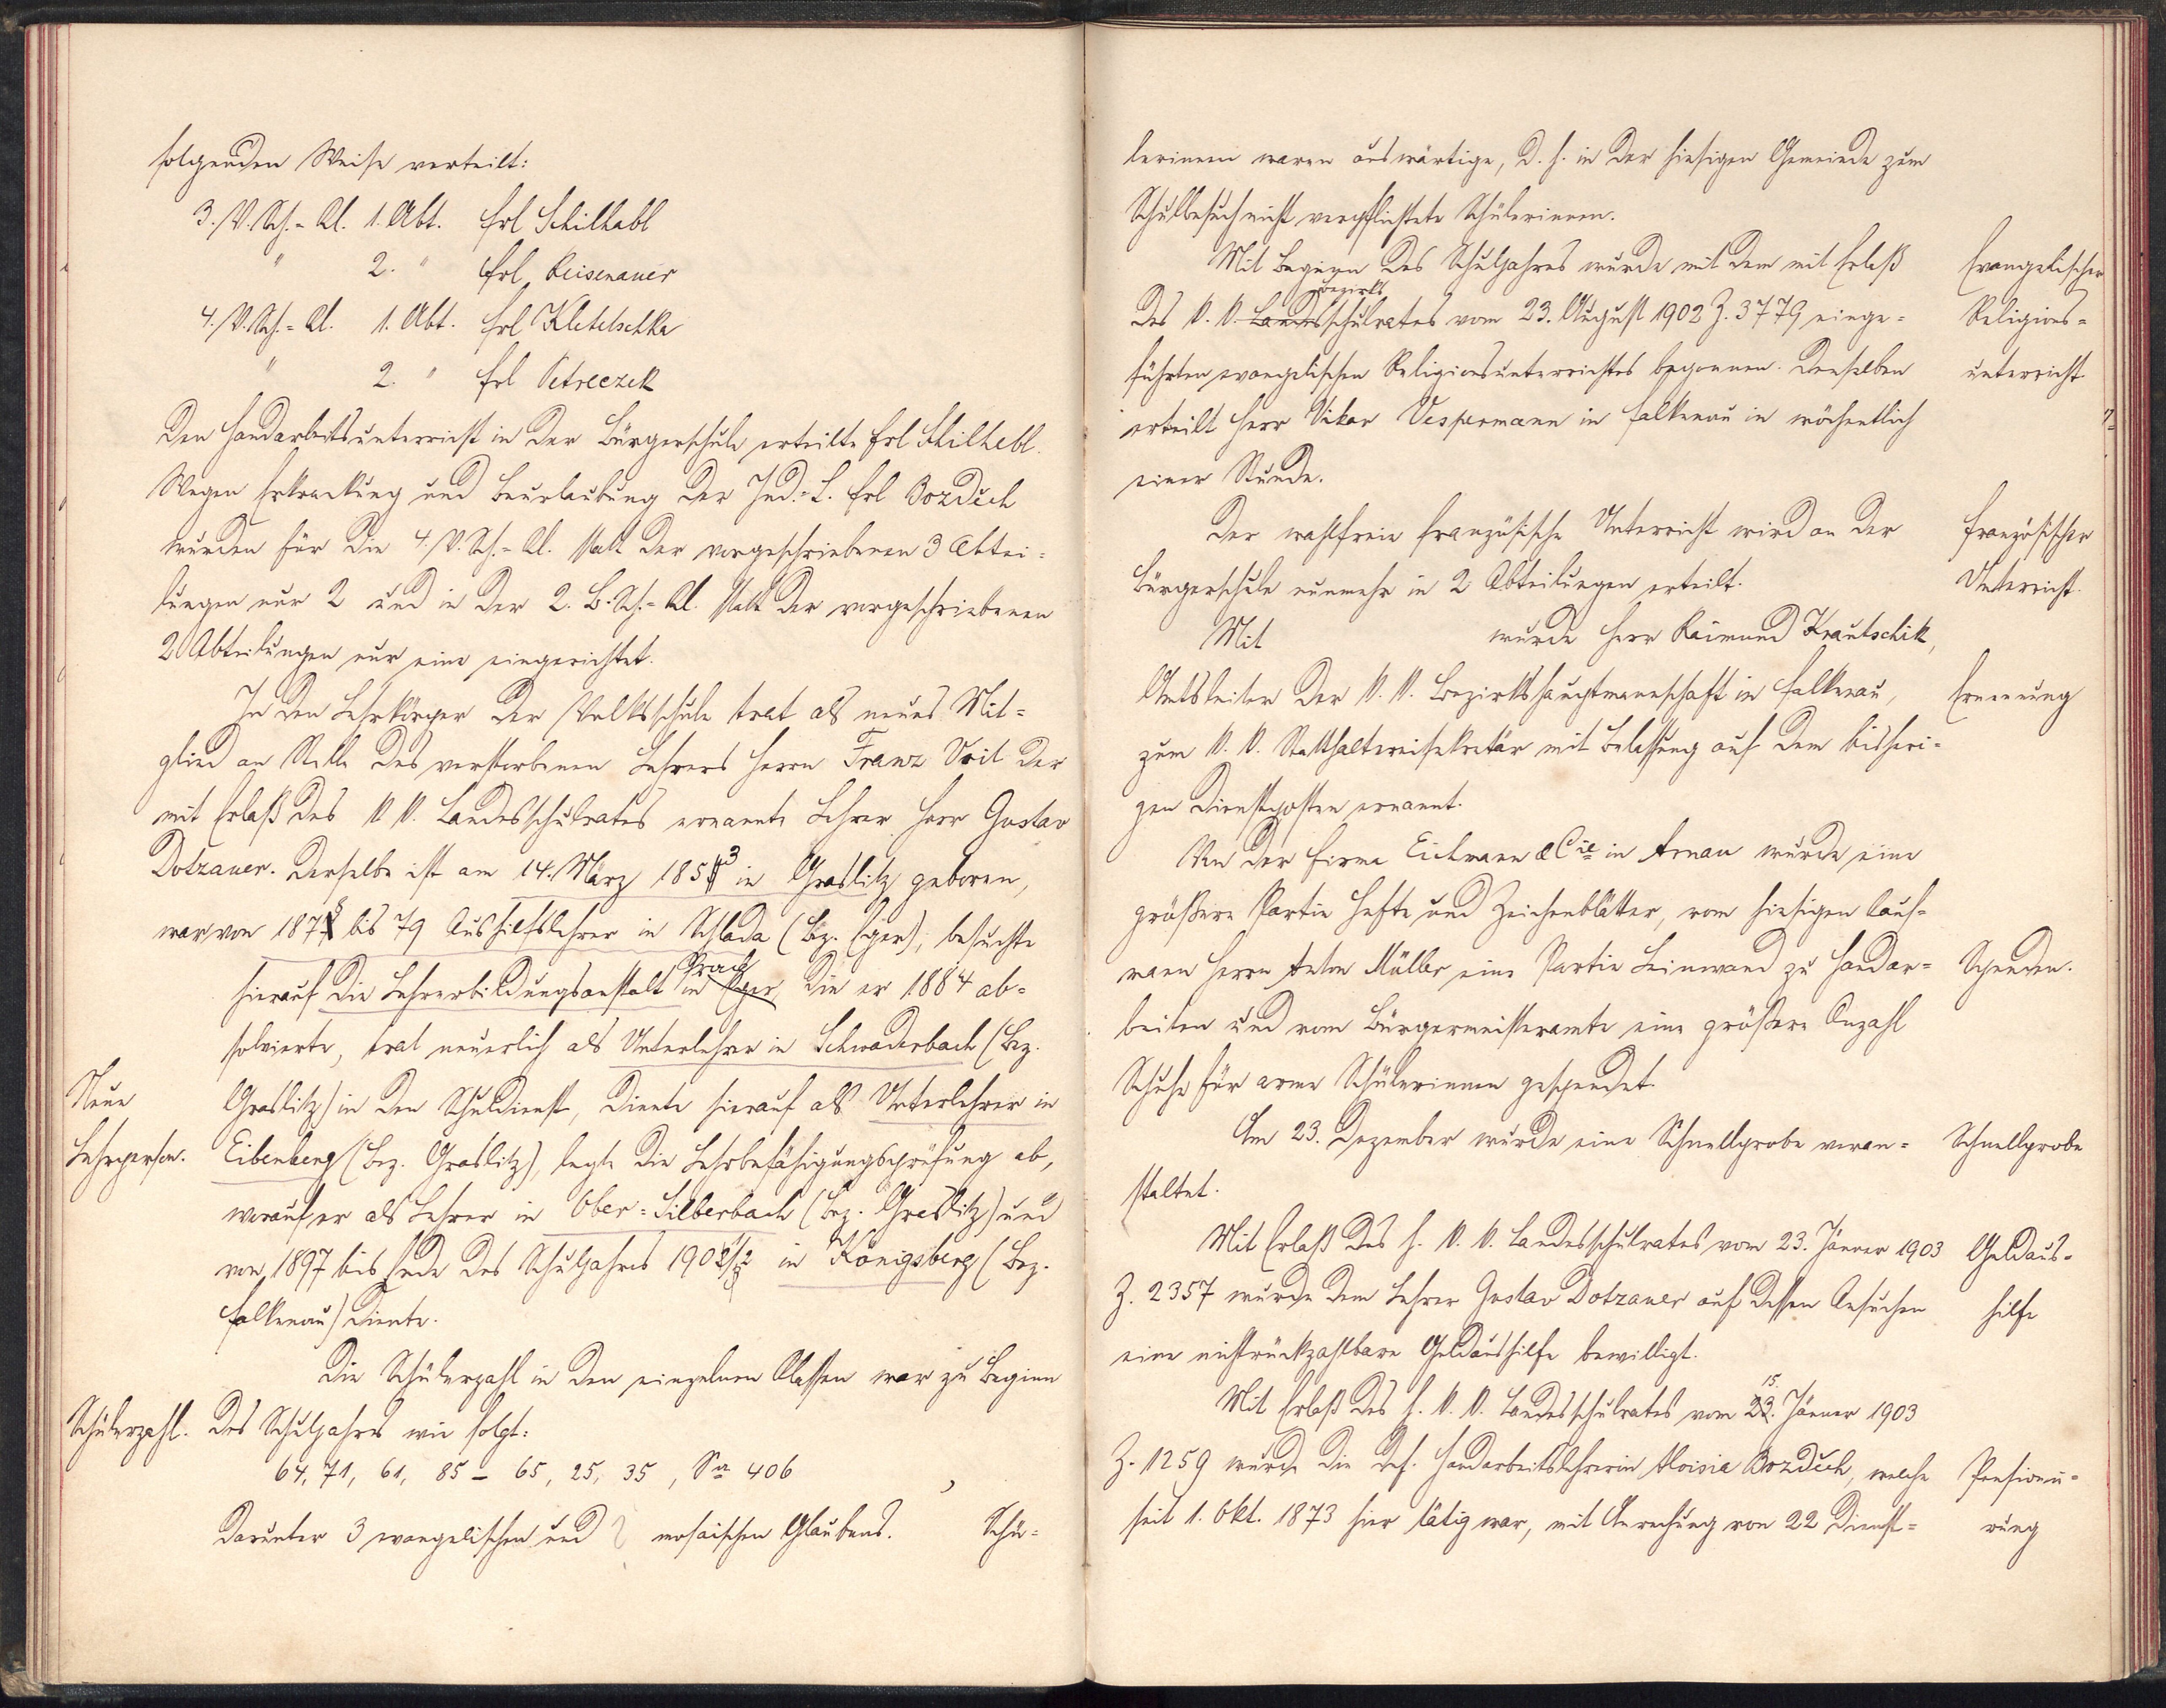 folgenden Weise verteilt:
3. V. Sch.-Kl. 1. Abt. Frl Schilhabl
" 2. " Frl Reisenauer
4. V. Sch.-Kl. 1. Abt. Frl Kletetschka
" 2. " Frl Petreczek
Den Handarbeitsunterricht in der Bürgerschule erteilte Frl Schilhabl.
Wegen Erkrankung und Beurlaubung der Ind.-L. Frl Bozdĕch
wurden für die 4. V. Sch.-Kl. statt der vorgeschriebenen 3 Abtei-
lungen nur 2 und in der 2. B. Sch.-Kl. statt der vorgeschriebenen
2 Abteilungen nur eine eingerichtet.
In den Lehrkörper der Volksschule trat als neues Mit-
glied an Stelle des verstorbenen Lehrers Herrn Franz Voit der
mit Erlaß des k. k. Landesschulrates ernannte Lehrer Herr Gustav
Dotzauer. Derselbe ist am 14. März 1853 in Graslitz geboren,
war von 1878 bis 79 Aushilfslehrer in Schlada (Bz. Eger), besuchte
Prag
hierauf die Lehrerbildungsanstalt in Eger, die er 1884 ab-
solvierte, trat neuerlich als Unterlehrer in Schwaderbach (Bez.
Neue Graslitz) in den Schuldienst, diente hierauf als Unterlehrer in
Lehrperson. Eibenberg (Bez. Graslitz), legte die Lehrbefähigungsprüfung ab,
worauf er als Lehrer in Ober-Silberbach (Bez. Graslitz) und
von 1897 bis Ende des Schuljahres 1901/2 in Königsberg (Bez.
Falkenau) diente.
Die Schülerzahl in den einzelnen Klassen war zu Beginn
Schülerzahl. des Schuljahres wie folgt:
64, 71, 61, 85 – 65, 25, 35, Sa 406
darunter 3 evangelischen und mosaischen Glaubens. Schü-
lerinnen waren auswärtige, d. h. in der hiesigen Gemeinde zum
Schulbesuch nicht verpflichtete Schülerinnen.
Mit Beginn des Schuljahres wurde mit dem mit Erlaß Evangelischer
Bezirks
des k. k. Landesschulrates vom 23. August 1902 Z. 3779 einge- Religions-
führten evangelischen Religionsunterrichtes begonnen. Denselben unterricht
erteilt Herr Vikar Vespermann in Falkenau in wöchentlich
einer Stunde.
Der wahlfreie französische Unterricht wird an der Französischer
Bürgerschule nunmehr in 2 Abteilungen erteilt. Unterricht.
Mit wurde Herr Raimund Krautschik,
Amtsleiter der k. k. Bezirkshauptmannschaft in Falkenau, Ernennung
zum k. k. Statthaltereisekretär mit Belassung auf dem bisheri-
gen Dienstposten ernannt.
Von der Firma Eichmann & Cie in Arnau wurde eine
größere Partie Hefte und Zeichenblätter, vom hiesigen Kauf-
mann Herrn Anton Müller eine Partie Leinwand zu Handar- Spenden.
beiten und vom Bürgermeisteramte eine größere Anzahl
Schuhe für arme Schülerinnen gespendet.
Am 23. Dezember wurde eine Schnellprobe veran- Schnellprobe
staltet.
Mit Erlaß des h. k. k. Landesschulrates vom 23. Jänner 1903 Geldaus-
Z. 2357 wurde dem Lehrer Gustav Dotzauer auf dessen Ansuchen hilfe
eine nichtrückzahlbare Geldaushilfe bewilligt.
15.
Mit Erlaß des h. k. k. Landesschulrates vom 23. Jänner 1903
Z. 1259 wurde die def. Handarbeitslehrerin Aloisia Bozdĕch, welche Pensionie-
seit 1. Okt. 1873 hier tätig war, mit Anrechnung von 22 Dienst- rung